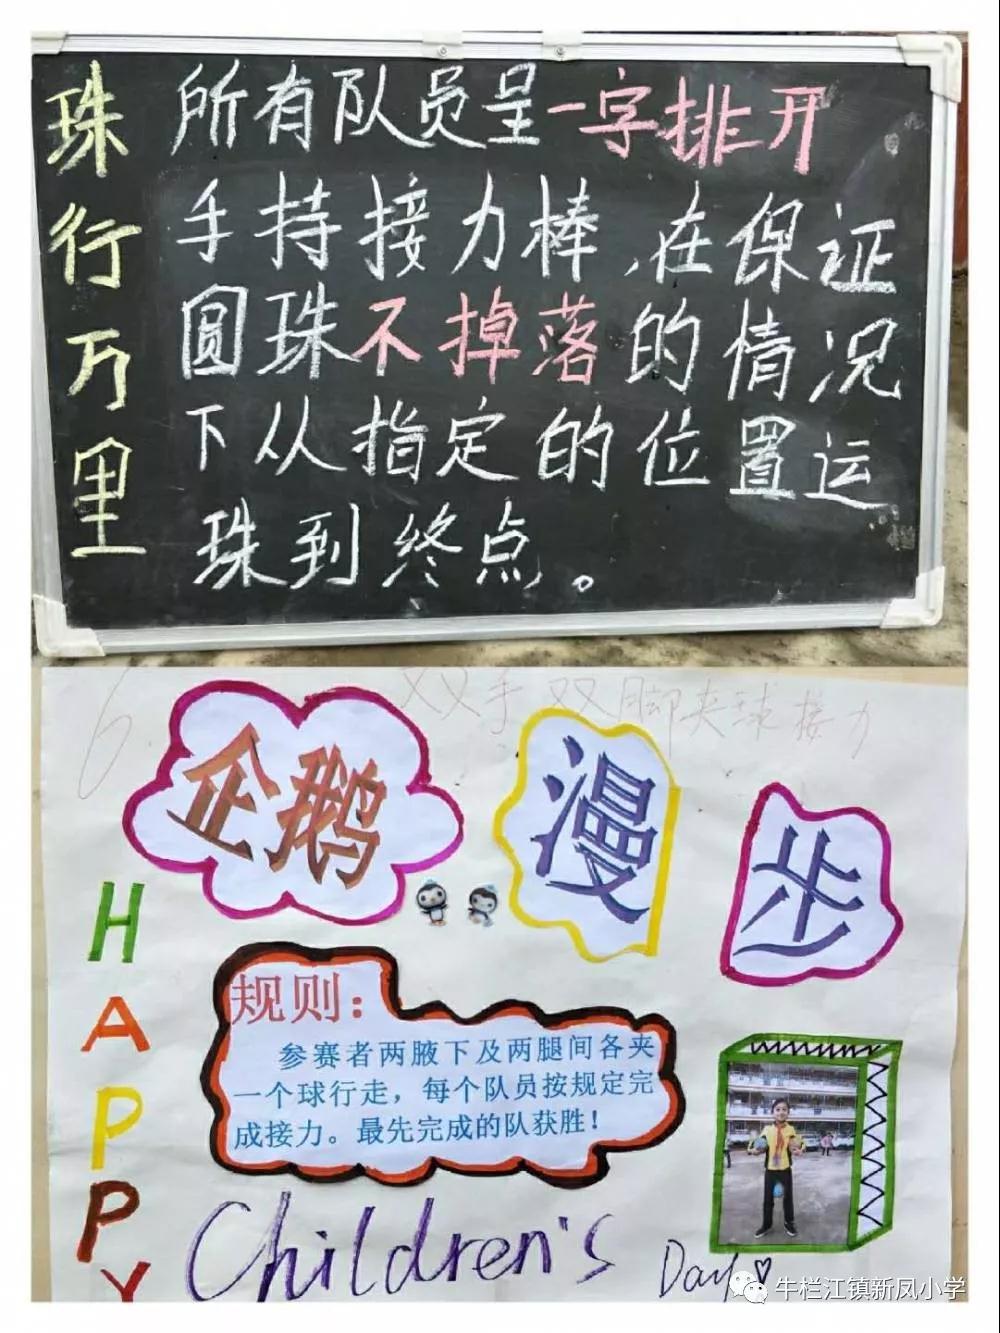 珠行万里
所有队员呈一字排开
手持接力棒，在保证
圆珠不掉落的情况
下从指定的位置运
珠到终点。
6 双手双脚夹球接力
企鹅
漫
步
HAPPY
规则：
参赛者两腋下及两腿间各夹
一个球行走，每个队员按规定完
成接力。最先完成的队获胜！
Children's
Day
牛栏江镇新凤小学